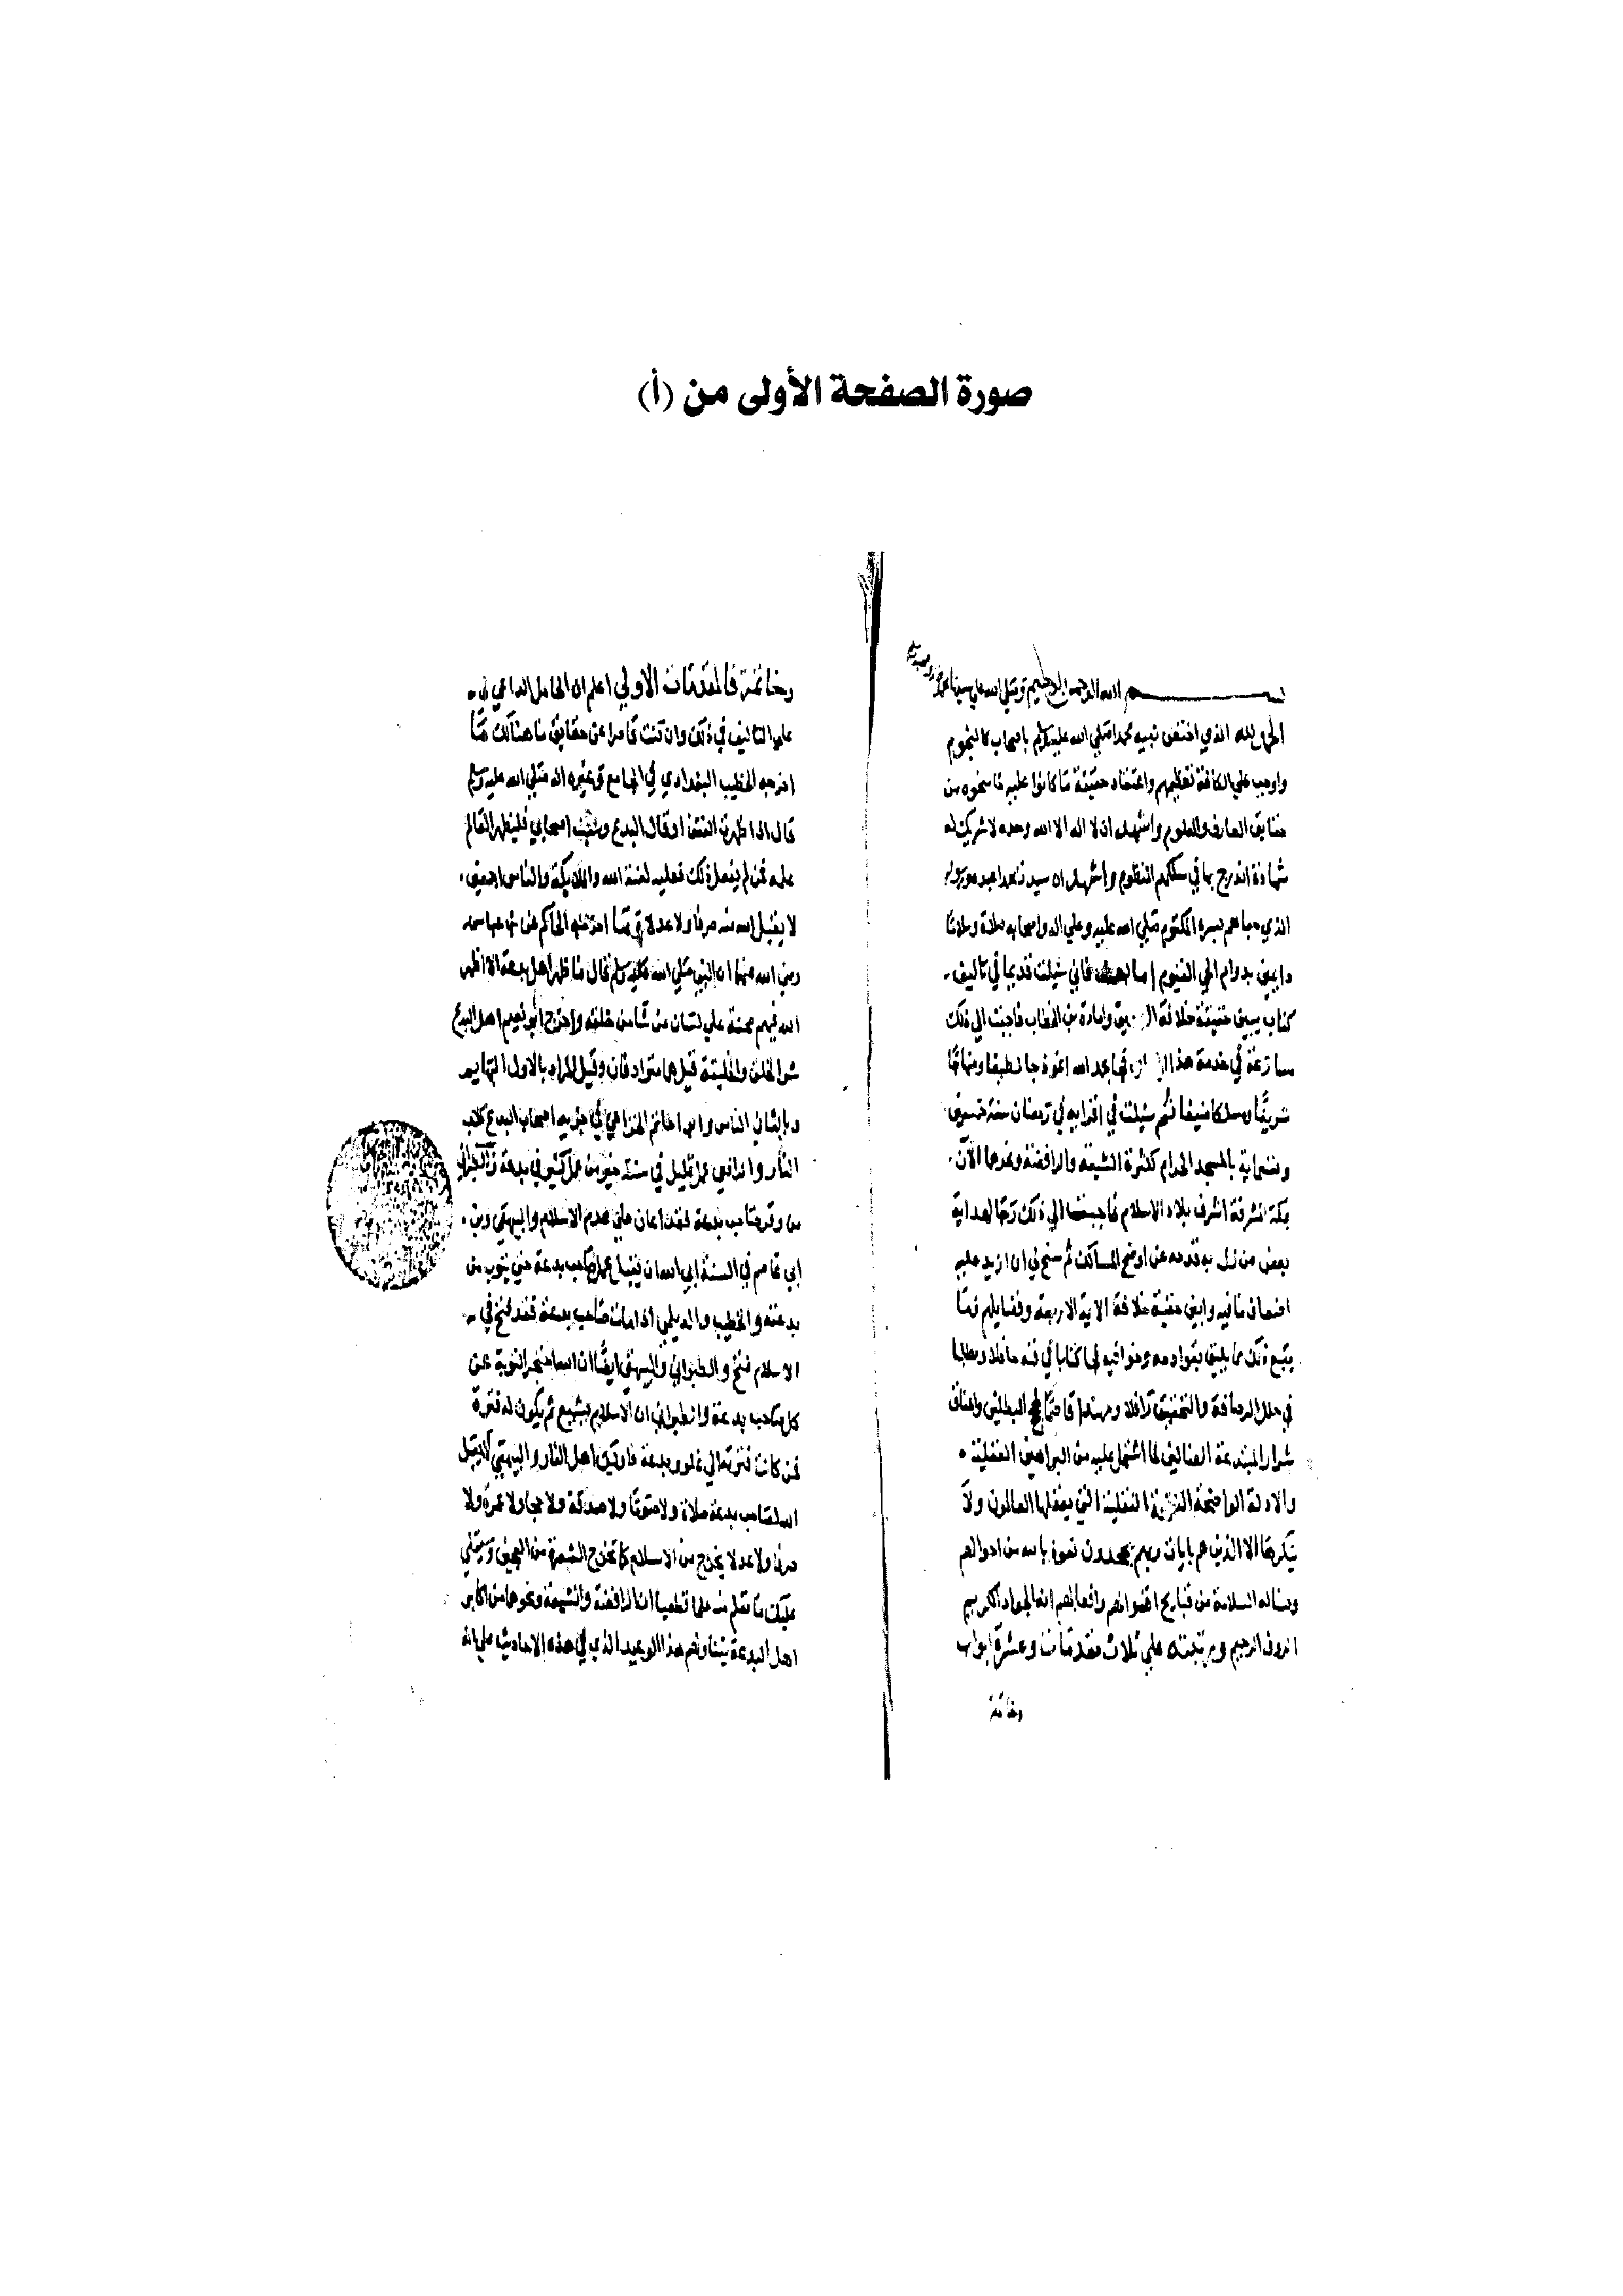 صورة الصفحة الأولى من (أ)
بسم الله الرحمن الرحيم وصلي الله علي سيدنا محمد
الحمد لله الذي اختص نبيه محمدا صلي الله عليه وسلم باصحاب كالنجوم
واوجب علي الكافة تعظيمهم واعتقاد حقيقة ما كانوا عليه لما منحوه من
حقايق المعارف والعلوم واشهد ان لا اله الا الله وحده لا شريك له
شهادة اندرج بها في سلكهم المنظوم واشهد ان سيدنا محمدا عبده ورسوله
الذي حباهم بسره المكتوم صلي الله عليه وعلي اله واصحابه صلاة وسلاما
دايمين بدوام الحي القيوم اما بعد فاني سيلت قديما في تاليف
كتاب يبين حقيقة خلافة وامارة بن الخطاب فاجبت الي ذلك
مسارعة في خدمة هذا فجا بحمد الله انموذجا لطيفا ومنهاجا
شريفا ومسلكا منيفا ثم سيلت في اقرايه في رمضان سنة خمسين
وتسعماية بالمسجد الحرام لكثرة الشيعة والرافضة ونحوها الآن
بمكة المشرفة اشرف بلاد الاسلام فاجبت الي ذلك رجا لهداية
بعض من زل به قدمه عن اوضح المسالك ثم سنح لي ان ازيد عليه
اضعاف ما فيه وابين حقيقة خلافة الايمة الاربعة وفضايلهم وما
يتبع ذلك مما يليق بقوادمه وخوافيه فجا كتابا في فنه حافلا ومطلبا
في حلل الرصافة والتحقيق رافلا ومهندا قاصما المبطلين واعناق
شرار المبتدعة الضالين لما اشتمل عليه من البراهين العقلية
والادلة الواضحة النقلية التي يعقلها العالمون ولا
ينكرها الا الذين هم بايات ربهم يجحدون نعوذ بالله من احوالهم
ونساله السلامة من قبايح اقوالهم وافعالهم انه الجواد الكريم
الروف الرحيم ورتبته علي ثلاث مقدمات وعشرة ابواب
وخاتمة
وخاتمة فالمقدمات الاولي اعلم ان الحامل الداعي لي
علي التاليف في ذلك وان كنت قاصرا عن حقايق ما هنالك ما
اخرجه الخطيب البغدادي في الجامع وغيره انه صلي الله عليه وسلم
قال اذا ظهرت الفتن او قال البدع وسب اصحابي فليظهر العالم
علمه فمن لم يفعل ذلك فعليه لعنة الله والملايكة والناس اجمعين
لا يقبل الله منه صرفا ولا عدلا وما اخرجه الحاكم عن بن عباس
رضي الله عنهما ان النبي صلي الله عليه وسلم قال ما ظهر اهل بدعة الا اظهر
الله فيهم حجته علي لسان من شا من خلقه واخرج ابو نعيم اهل البدع
شر الخلق والخليقة قيل هما مترادفان وقيل المراد بالاول البهايم
وبالثاني الناس وابو حاتم الخزاعي في جزيه اصحاب البدع كلاب
النار والرافعي عمل قليل في سنة خير من عمل كثير في بدعة والطبراني
من وقر صاحب بدعة فقد اعان علي هدم الاسلام والبيهقي وبن
ابي عاصم في السنة ابي الله ان يقبل عمل صاحب بدعة حتي يتوب من
بدعته والخطيب والديلمي اذا مات صاحب بدعة فقد فتح في
الاسلام فتح والطبراني والبيهقي ايضا ان الله احتجر التوبة عن
كل صاحب بدعة والطبراني ان الاسلام يشيع ثم يكون له فترة
فمن كانت فترته الي غلو وبدعة فاوليك اهل النار والبيهقي لا يقبل
الله لصاحب بدعة صلاة ولا صوما ولا صدقة ولا حجا ولا عمرة ولا
صرفا ولا عدلا يخرج من الاسلام كما تخرج الشعرة من العجين وسيتلي
عليك ما تعلم منه علما قطعيا ان الرافضة والشيعة ونحوهما من اكابر
اهل البدعة يتناولهم هذا الوعيد الذي في هذه الاحاديث علي انه